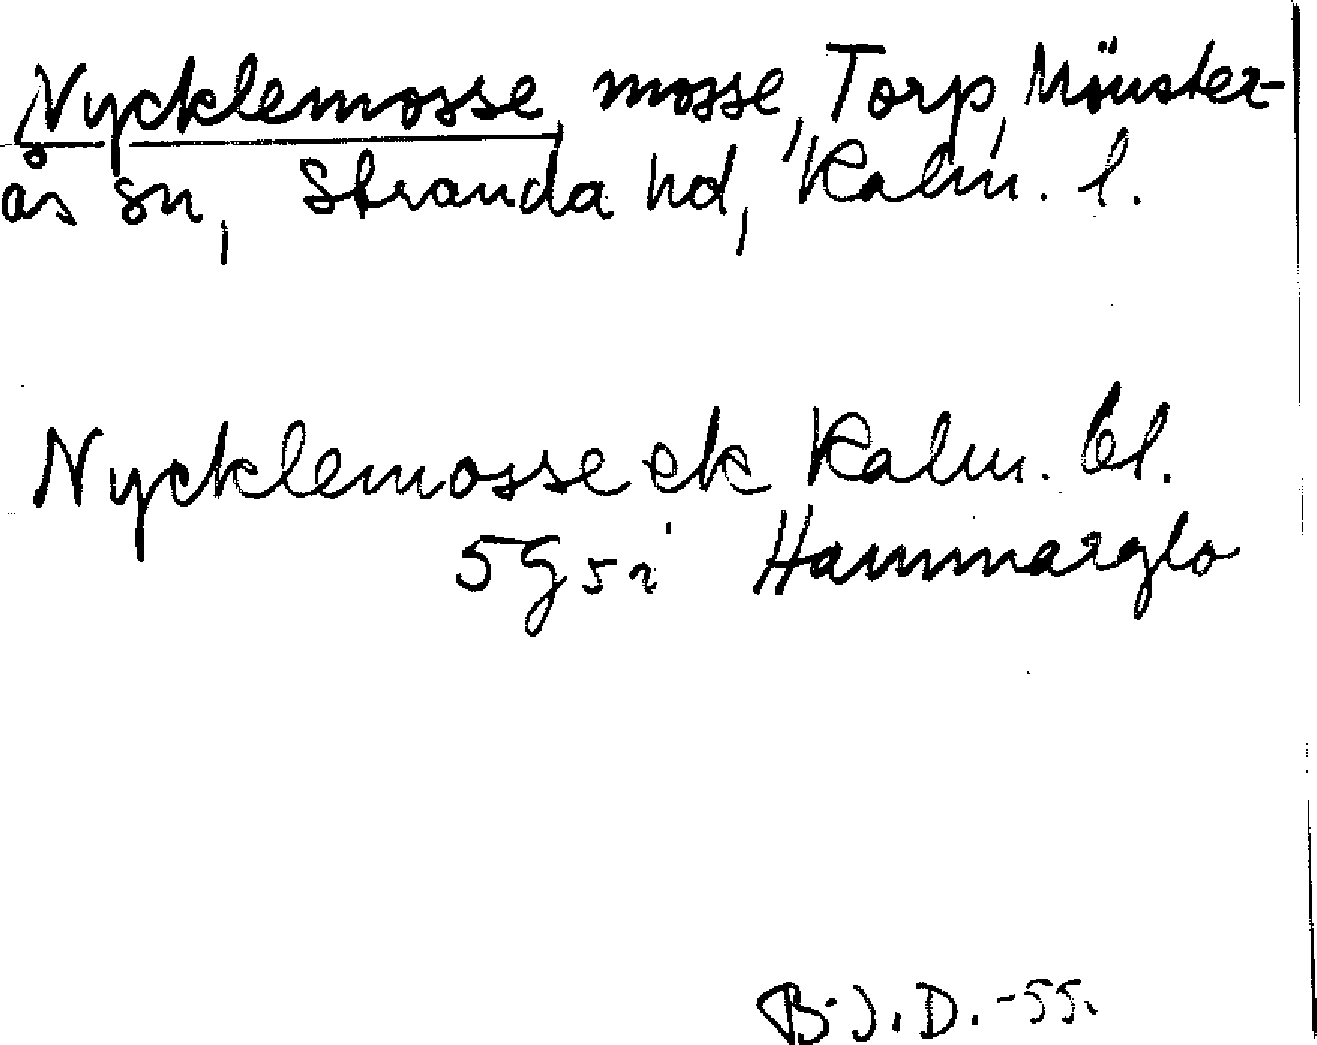 Nycklemosse, mosse, Torp, Mönster-
ås sn, Stranda hd, Kalm. l.
Nycklemosse ek Kalm. bl.
5G5i Hammarglo
B.J.D. -55.